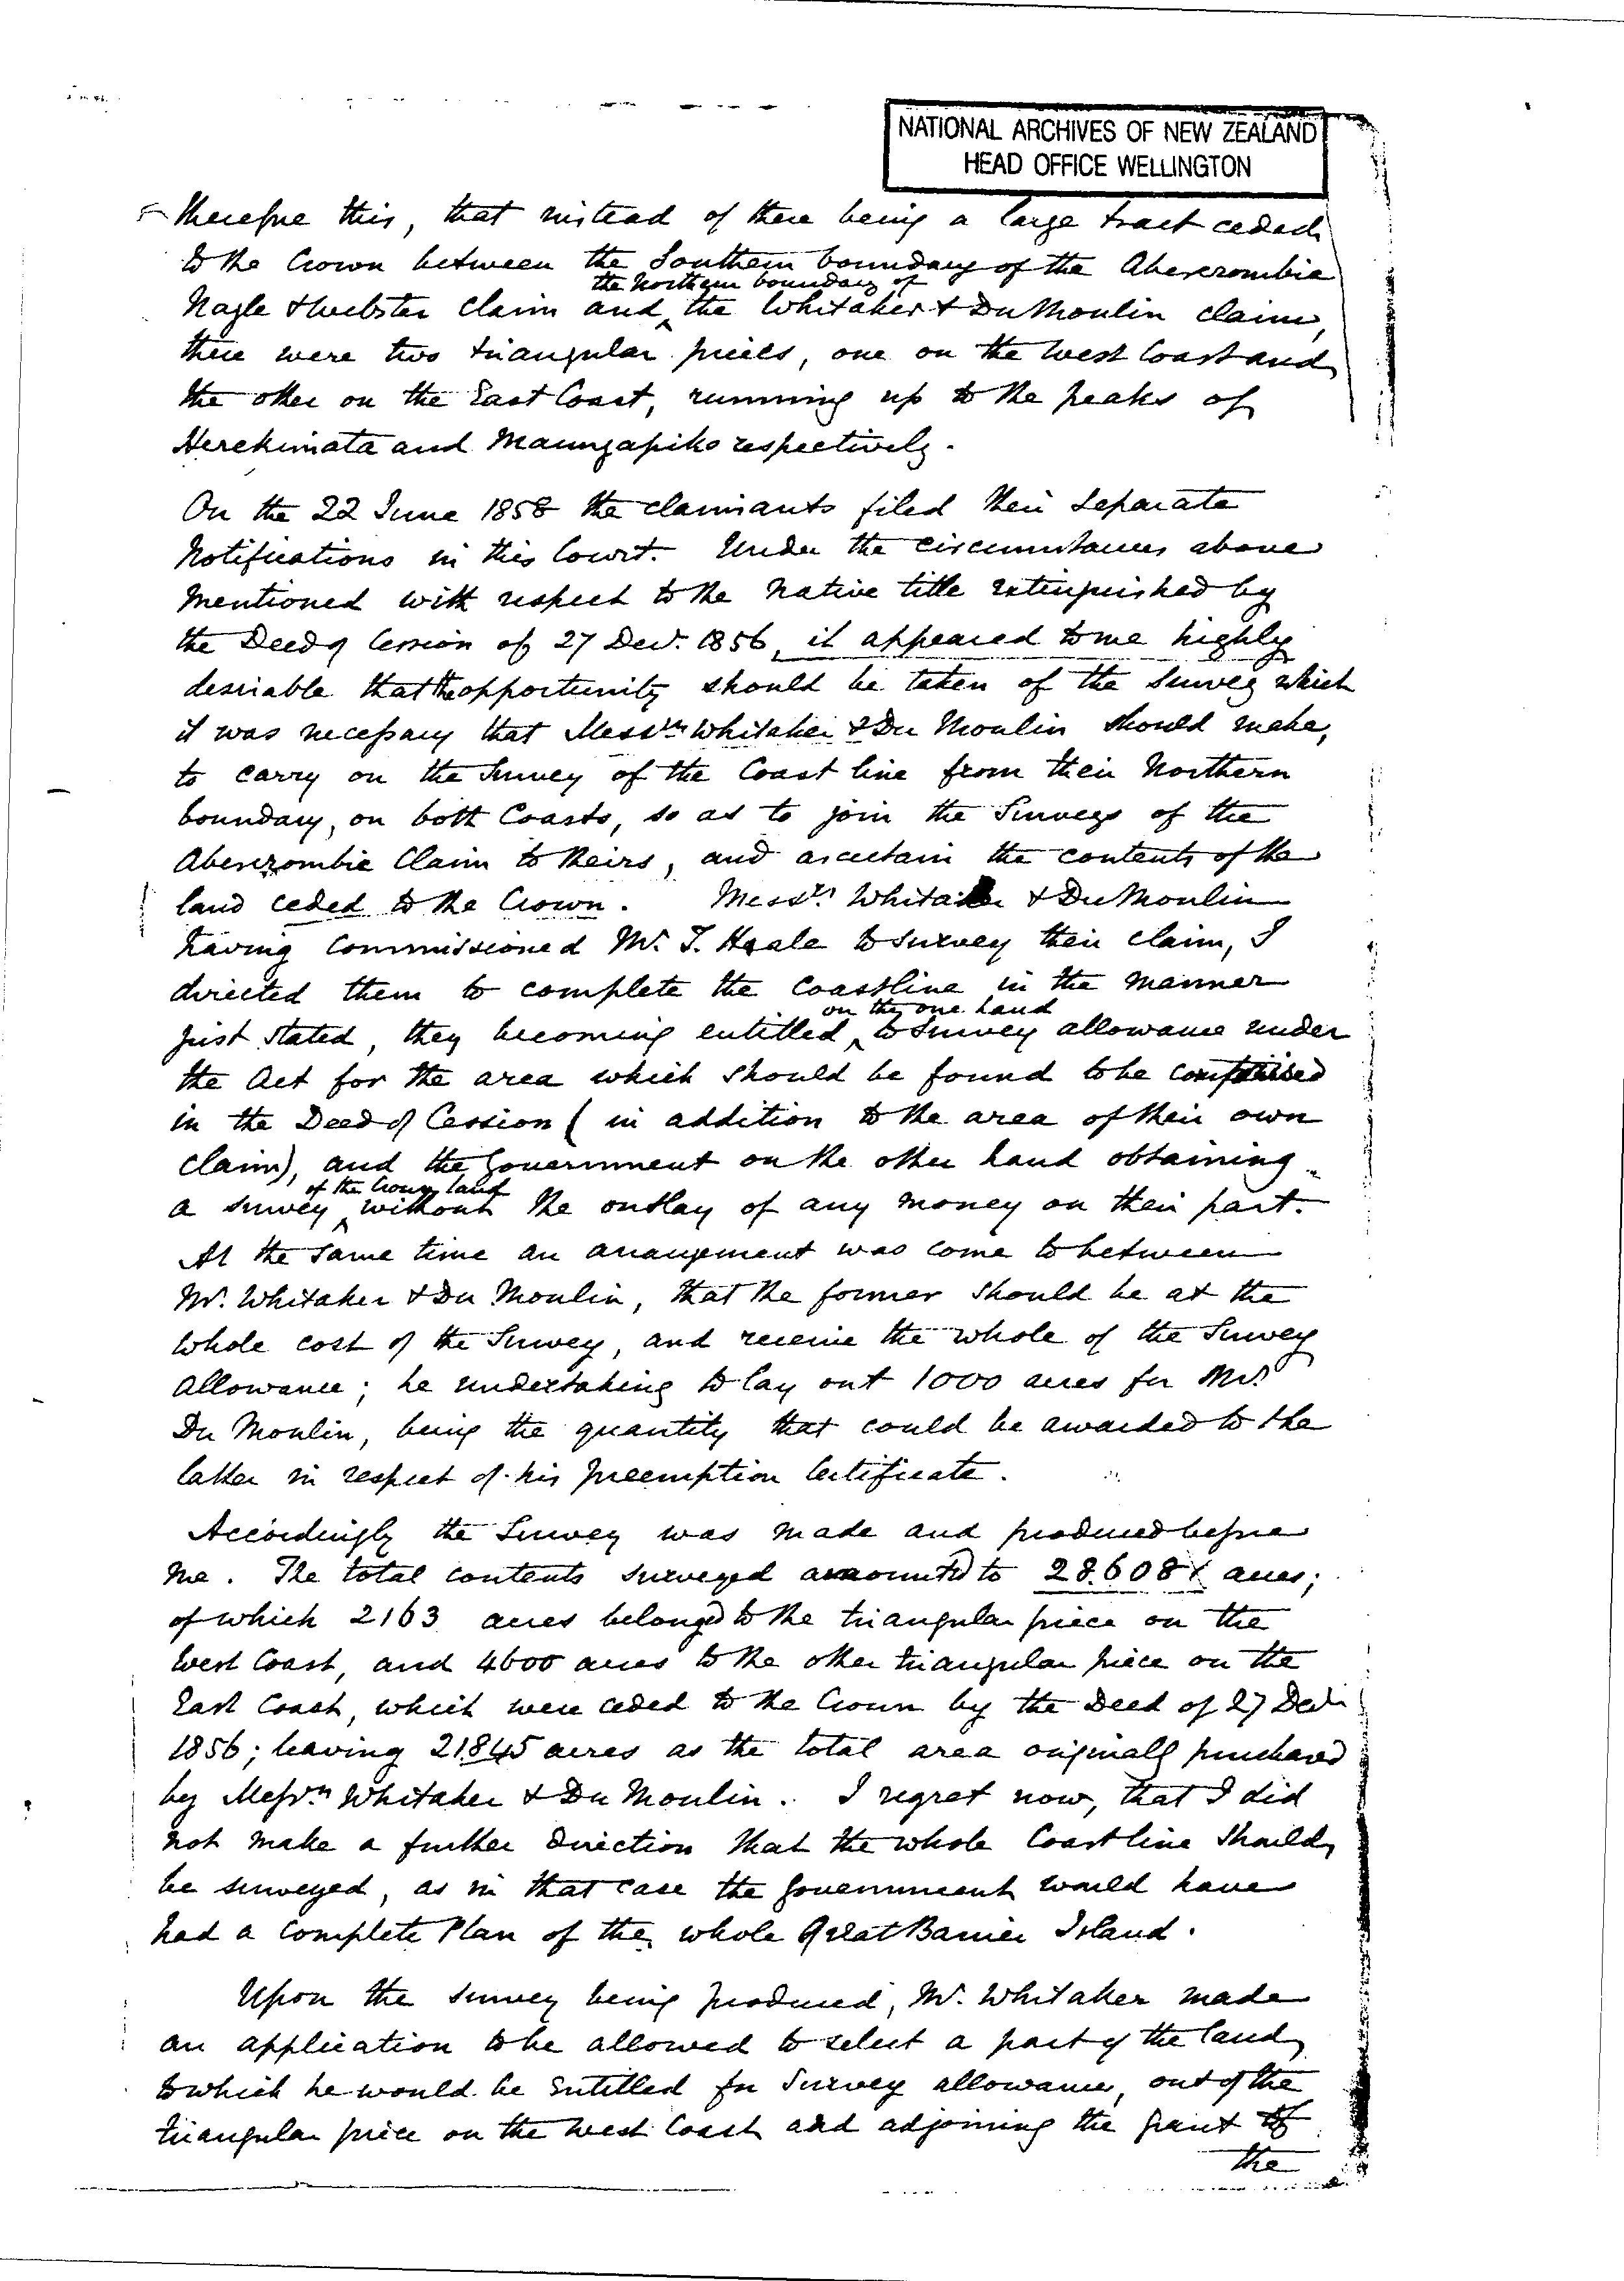 NATIONAL ARCHIVES OF NEW ZEALAND
HEAD OFFICE WELLINGTON
therefore this, that instead of there being a large tract ceded
to the Crown between the Southern boundary of the Abercrombie
the Northern boundary of
Nagle & Webster claim and the Whitaker & Du Moulin claim,
there were two triangular pieces, one on the West Coast and
the other on the East Coast, running up to the peaks of
Herekimata and Maungapiko respectively.
On the 22 June 1858 the claimants filed their separate
Notifications in this Court. Under the circumstances above
mentioned with respect to the native title extinguished by
the Deed of Cession of 27 Decr. 1856, it appeared to me highly
desirable that the opportunity should be taken of the survey which
it was necessary that Messrs Whitaker & Du Moulin should make,
to carry on the survey of the Coast line from their Northern
boundary, on both Coasts, so as to join the Surveys of the
Abercrombie Claim to theirs, and ascertain the contents of the
land ceded to the Crown. Messrs. Whitaker & Du Moulin
having commissioned Mr. T. Heale to survey their claim, I
directed them to complete the Coastline in the manner
on the one hand
just stated, they becoming entitled to survey allowance under
the Act for the area which should be found to be comprised
in the Deed of Cession (in addition to the area of their own
claim), and the Government on the other hand obtaining
of the Crown land
a survey without the outlay of any money on their part.
At the same time an arrangement was come to between
Mr. Whitaker & Du Moulin, that the former should be at the
whole cost of the Survey, and receive the whole of the Survey
allowance; he undertaking to lay out 1000 acres for Mr.
Du Moulin, being the quantity that could be awarded to the
latter in respect of his preemption Certificate.
Accordingly the Survey was made and produced before
me. The total contents surveyed amounted to 28.608 acres;
of which 2163 acres belonged to the triangular piece on the
West Coast, and 4600 acres to the other triangular piece on the
East Coast, which were ceded to the Crown by the Deed of 27 Decr
1856; leaving 21.845 acres as the total area originally purchased
by Messrs Whitaker & Du Moulin. I regret now, that I did
not make a further direction that the whole Coast line should
be surveyed, as in that case the Government would have
had a complete Plan of the whole Great Barrier Island.
Upon the survey being produced, Mr. Whitaker made
an application to be allowed to select a part of the land
to which he would be entitled for Survey allowance, out of the
triangular piece on the West Coast and adjoining the grant to
the